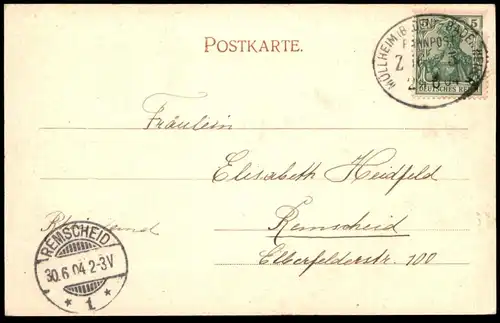 POSTKARTE.
5
DEUTSCHES REICH
MÜLLHEIM (B
BAHNPOST
Fräulein
Elisabeth Heidfeld
Remscheid
Elberfelderstr. 100
REMSCHEID
30.6.04.2-3V
* 1. *